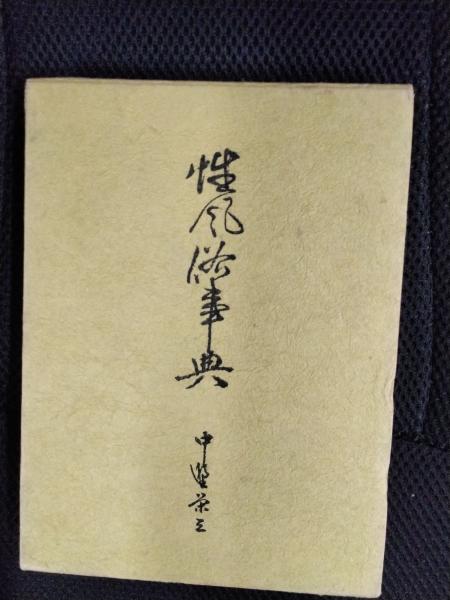 性風俗事典
中野栄三